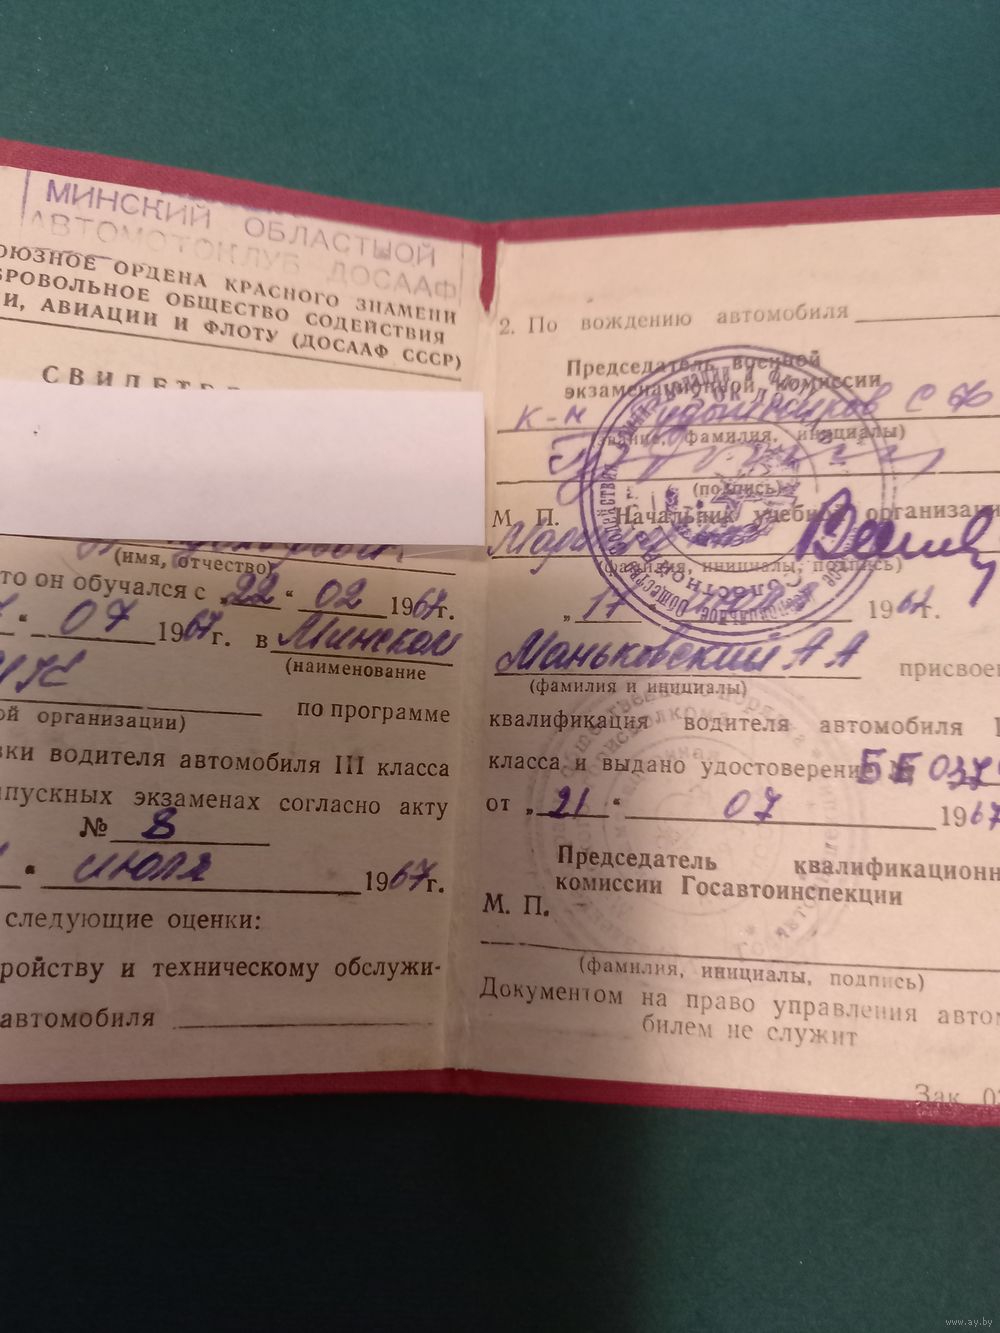 МИНСКИЙ ОБЛАСТНОЙ
АВТОМОТОКЛУБ ДОСААФ
ОЮЗНОЕ ОРДЕНА КРАСНОГО ЗНАМЕНИ
БРОВОЛЬНОЕ ОБЩЕСТВО СОДЕЙСТВИЯ
И, АВИАЦИИ И ФЛОТУ (ДОСААФ СССР)
СВИДЕТЕ
(имя, отчество)
то он обучался с „22“ 02 1967г.
“ 07 1967г. в Минском
(наименование
ой организации)
по программе
вки водителя автомобиля III класса
ыпускных экзаменах согласно акту
№ 8
“ июля 1967г.
следующие оценки:
ройству и техническому обслужи-
автомобиля
2. По вождению автомобиля
Председатель военной
экзаменационной комиссии
к-н
(звание, фамилия, инициалы)
(подпись)
М. П. Начальник учебной организаци
(фамилия, инициалы, подпись)
„17 1967г.
Маньковский А А присвое
(фамилия и инициалы)
квалификация водителя автомобиля
класса и выдано удостоверение № ББ 037
от „21“ 07 1967
Председатель квалификационн
комиссии Госавтоинспекции
М. П.
(фамилия, инициалы, подпись)
Документом на право управления автом
билем не служит
Зак. 0
www.ay.by